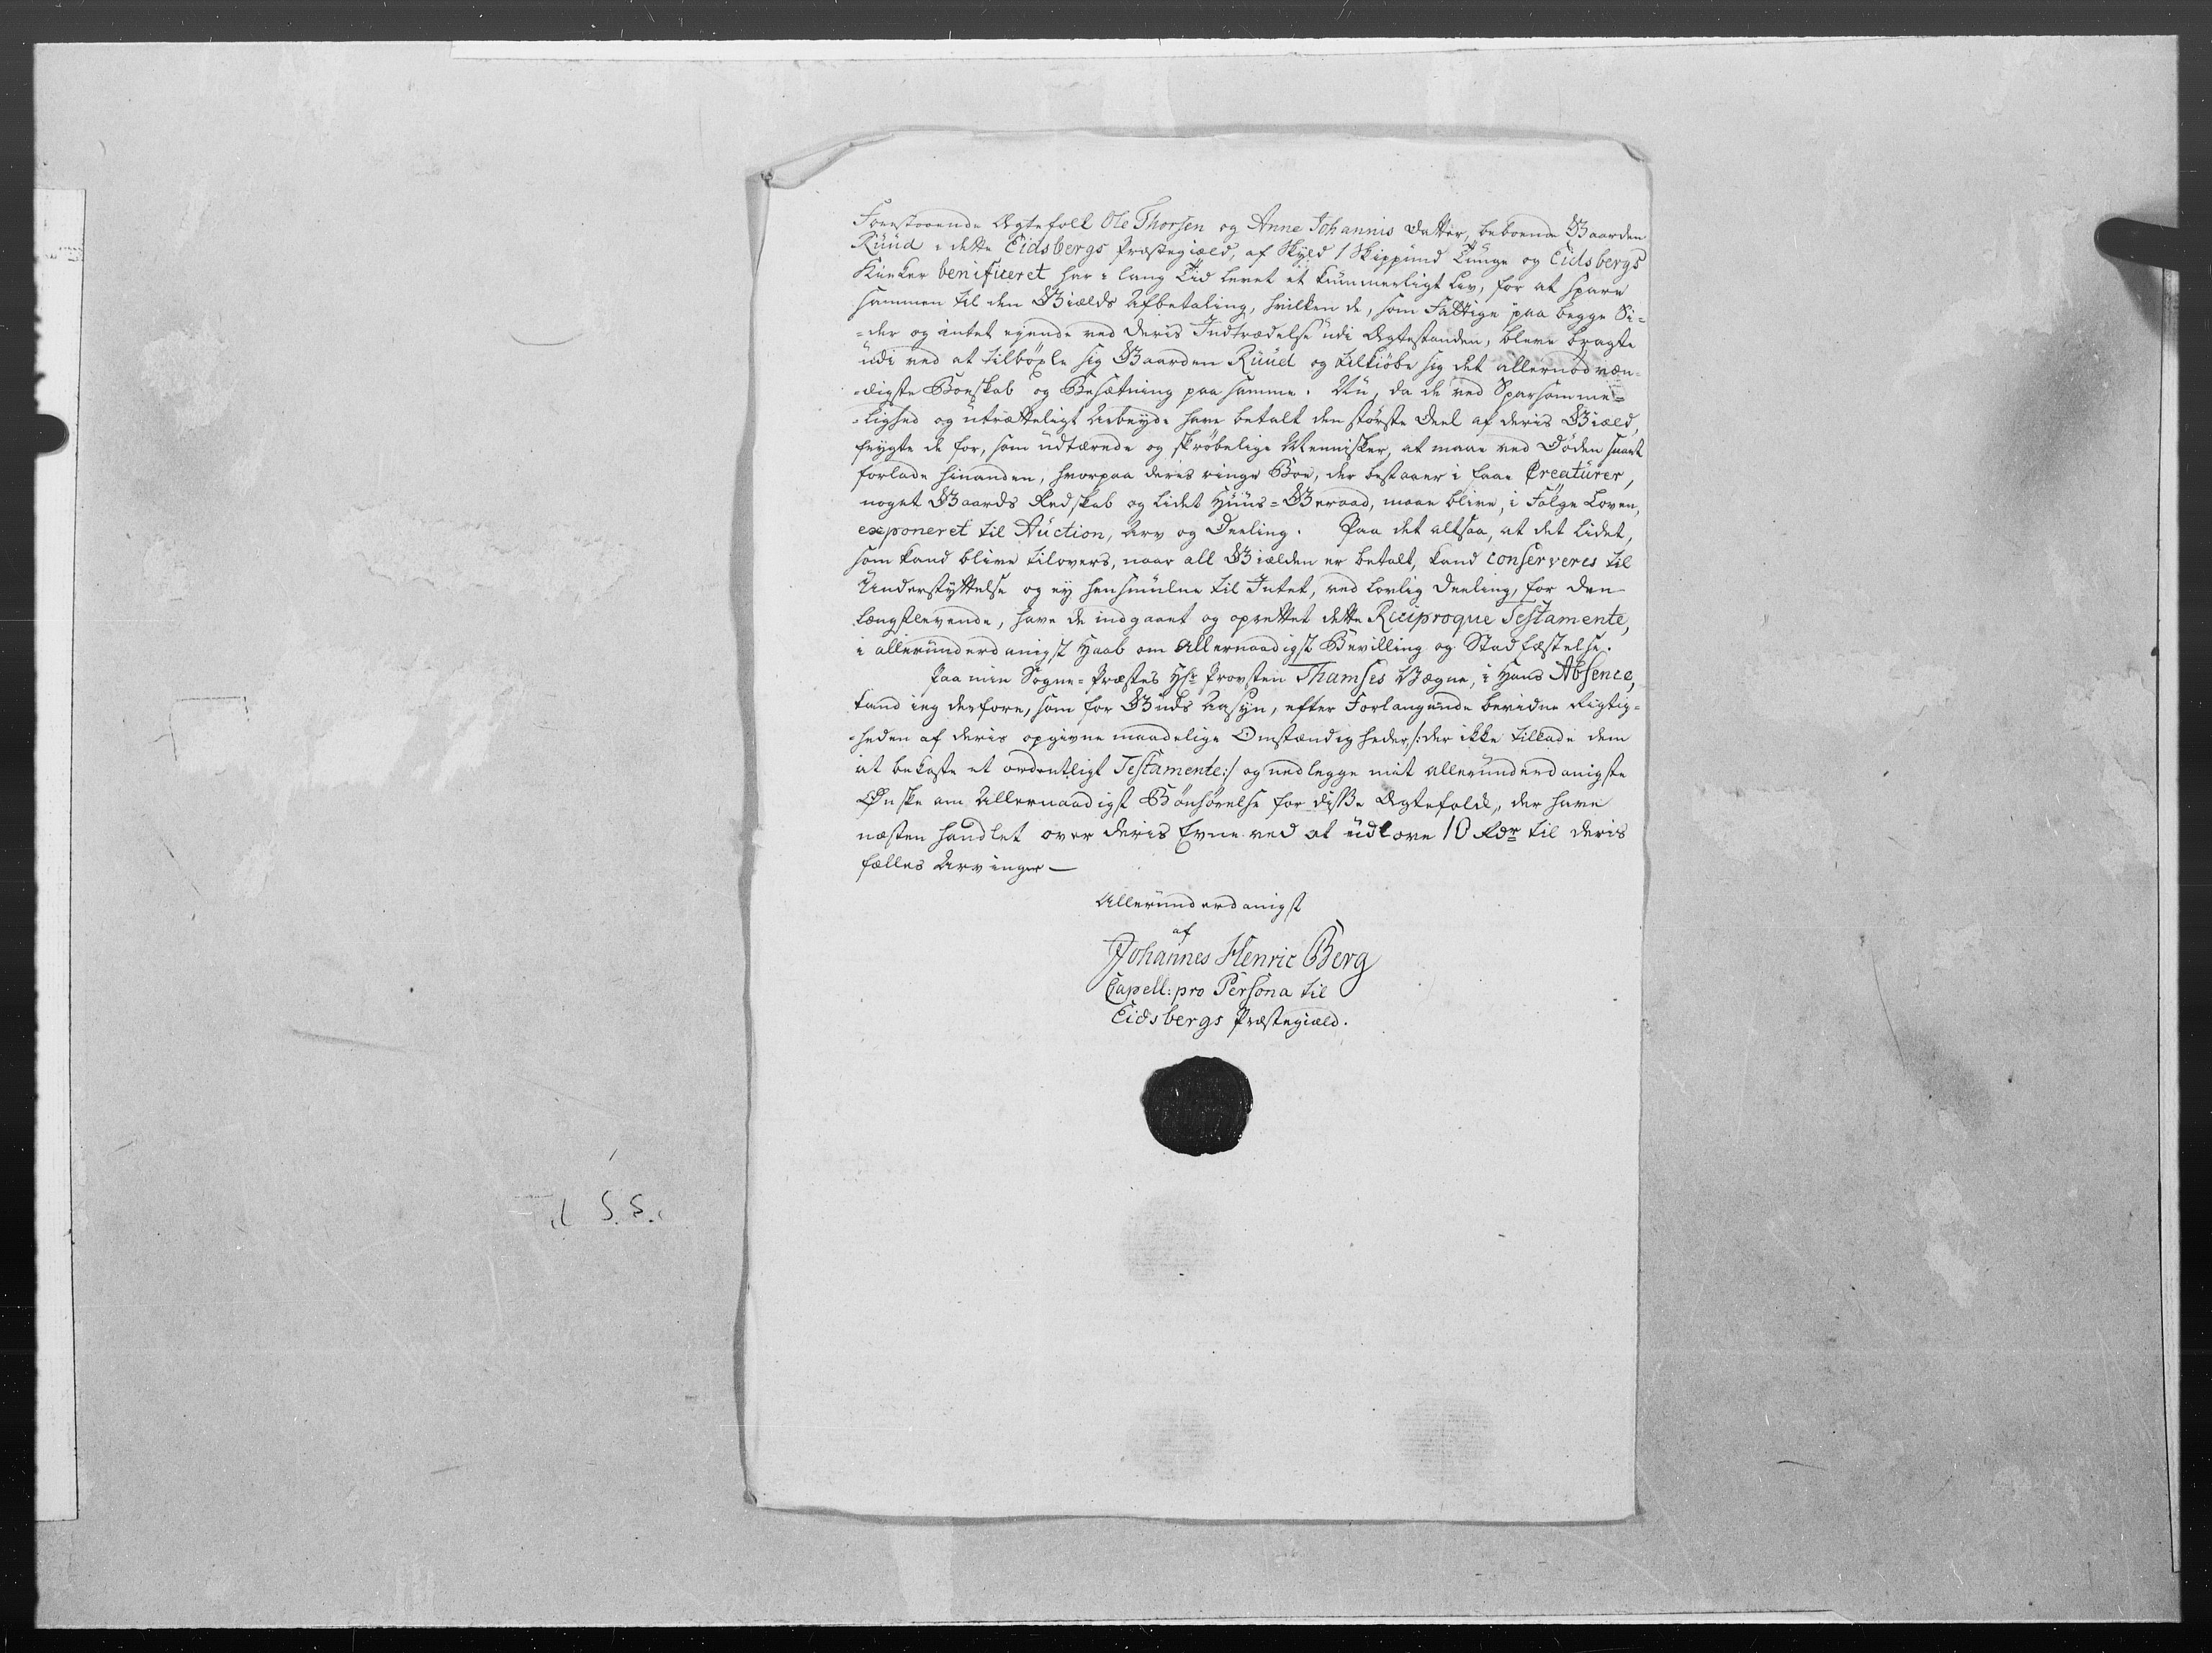 Forestaaende Ægtefolk Ole Thorsen og Anne Johannis Datter, beboende Gaarden
Ruud i dette Eidsbergs Præstegiæld, af Skyld 1 Skippund Tunge og Eidsbergs
Kirker benificeret har i lang Tid levet et kummerligt Liv, for at spare
sammen til den Giælds Afbetaling, hvilken de, som Fattige paa begge Si-
-der og intet eyende ved deris Indtrædelse udi Ægtestanden, bleve bragte
udi ved at tilböxle sig Gaarden Ruud og tilkiöbe sig det allernödvæn-
-digste Boeskab og Besætning paa samme. Nu, da de ved Sparsomme-
-lighed og utrætteligt Arbeyde have betalt den störste Deel af deris Giæld,
frygte de for, som udtærede og skröbelige Mennisker, at maae ved Döden snart
forlade hinanden, hvorpaa deris ringe Boe, der bestaaer i faae Creaturer,
noget Gaards Redskab og lidet Huus-Geraad, maae blive, i Fölge Loven,
exponeret til Auction, Arv og Deeling. Paa det altsaa, at det Lidet,
som kand blive tilovers, naar all Giælden er betalt, kand conserveres til
Understyttelse og ey hensmulne til Intet, ved lovlig Deeling, for den
Længstlevende, have de indgaaet og oprettet dette Reciproque Testamente,
i allerunderdanigst Haab om Allernaadigst Bevilling og Stadfæstelse.
Paa min Sogne-Præstes Hr: Provsten Thamses Vegne, i Hans Absence,
kand ieg derfore, som for Guds Aasyn, efter Forlangende bevidne Rigtig-
-heden af deris opgivne maadelige Omstændigheder /: der ikke tillade dem
at bekoste et ordentligt Testamente :/ og nedlegge mit allerunderdanigste
Önske om Allernaadigst Bönhörelse for disse Ægtefolk, der have
næsten handlet over deris Evne ved at udlove 10 Rdr til deris
fælles Arvinger —
Allerunderdanigst
af
Johannes Henric Berg
Capell: pro Persona til
Eidsbergs Præstegiæld.
Til S. S.